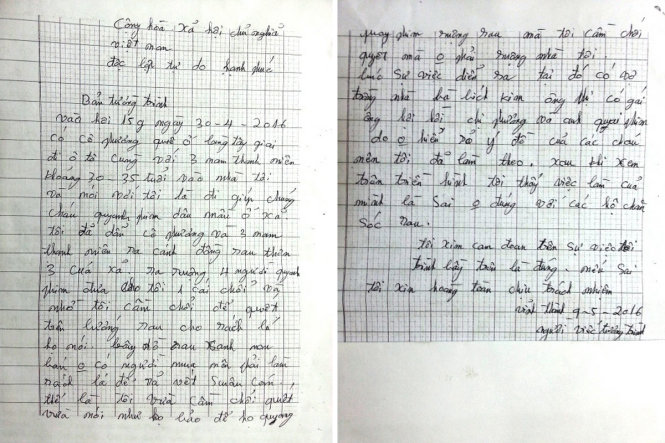 Cộng hòa xả hội chủ nghĩa
việt nam
độc lập tự do hạnh phúc
Bản tường trình
vào hồi 15g ngày 30-4-2016
có cô phương quê ở làng tây giai
đi ô tô cùng với 3 nam thanh niên
khoang 30-35 tuổi vào nhà tôi
và nói với tôi là đi giúp chúng
cháu quyanh phim dau mầu ở xã
tôi đả dẩn cô phương và 3 nam
thanh niên ra cánh đồng rau thôn
3 của xả ra ruộng 4 người đi quyanh
phim đưa cho tôi 1 cái chổi và
nhờ tôi cầm chổi để quét
trên luống rau cho rách lá
họ nói rau xanh non
bán o có người mua nên phải làm
rách lá để vả vết Suâu cắn,
thế là tôi vừa cầm chổi quét
vừa nói như họ bảo để họ quyang
quay phim ruộng rau mà tôi cầm chổi
quyét mà o phải ruộng nhà tôi
lúc sự việc diển ra tại đó có vợ
trồng nhà bà lích kien ông thi có gái
ông hồi bởi chị phương và anh quyai phim
do o hiển rỏ ý đồ của các chau
nên tôi đả làm theo. xau khi xen
trên triền hình tôi thấy việc làm của
mình là sai o đúng với các hộ chăn
sóc rau.
tôi xin cam đoan trên sự việc tôi
trình bầy trên là đúng. nếu sai
tôi xin hoàng toàn chịu trách nhiệm
vĩnh thành 9-5-2016
người viếc tường trình